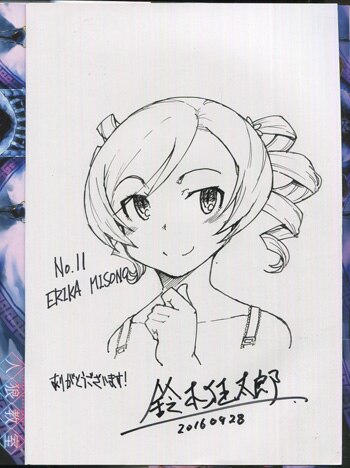 No.11
ERIKA MISONO
ありがとうございます!
鈴木狂太郎
20160928
人狼教室